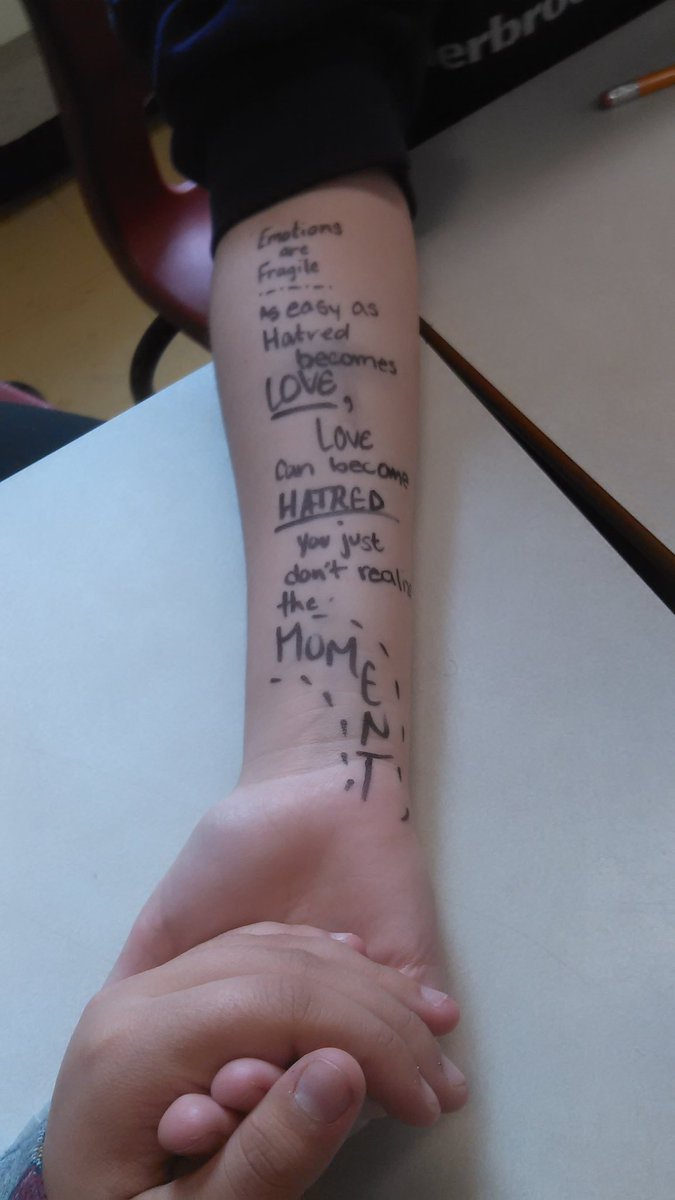 Emotions
are
Fragile
As easy as
Hatred
becomes
LOVE,
LOVE
Can become
HATRED
you just
don't
the
MOMENT